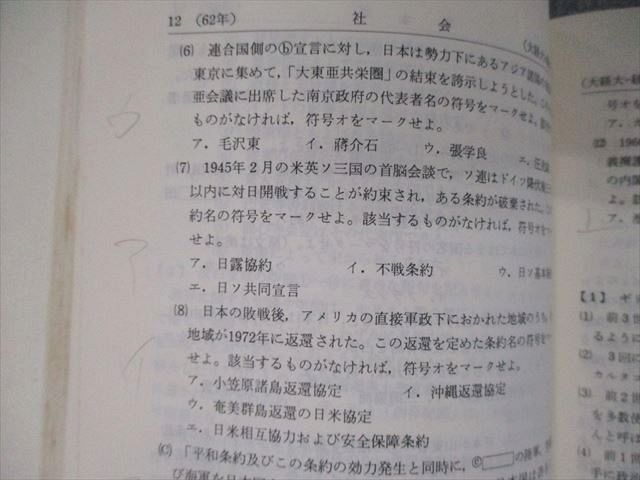 12 (62年) 社会
(6) 連合国側のⓑ宣言に対し，日本は勢力下にあるアジア諸国の
東京に集めて，「大東亜共栄圏」の結束を誇示しようとした。
亜会議に出席した南京政府の代表者名の符号をマークせよ。
ものがなければ，符号オをマークせよ。
ア．毛沢東 イ．蔣介石 ウ．張学良 エ．
(7) 1945年2月の米英ソ三国の首脳会談で，ソ連はドイツ降伏後
以内に対日開戦することが約束され，ある条約が破棄された。
約名の符号をマークせよ。該当するものがなければ，符号オを
せよ。
ア．日露協約 イ．不戦条約 ウ．日ソ基本
エ．日ソ共同宣言
(8) 日本の敗戦後，アメリカの直接軍政下におかれた地域のうち，
地域が1972年に返還された。この返還を定めた条約名の符号を
せよ。該当するものがなければ，符号オをマークせよ。
ア．小笠原諸島返還協定 イ．沖縄返還協定
ウ．奄美群島返還の日米協定
エ．日米相互協力および安全保障条約
(C) 「平和条約及びこの条約の効力発生と同時に，ⓒ の陸軍，
(大経大-
号オ
(12) 196
の内
ア．
【1】 ギ
(1) 前3世
るように
(2) 3回に
カルタ
(3) 前2世
を多数使
んと呼ば
(4) 前1世
手に政